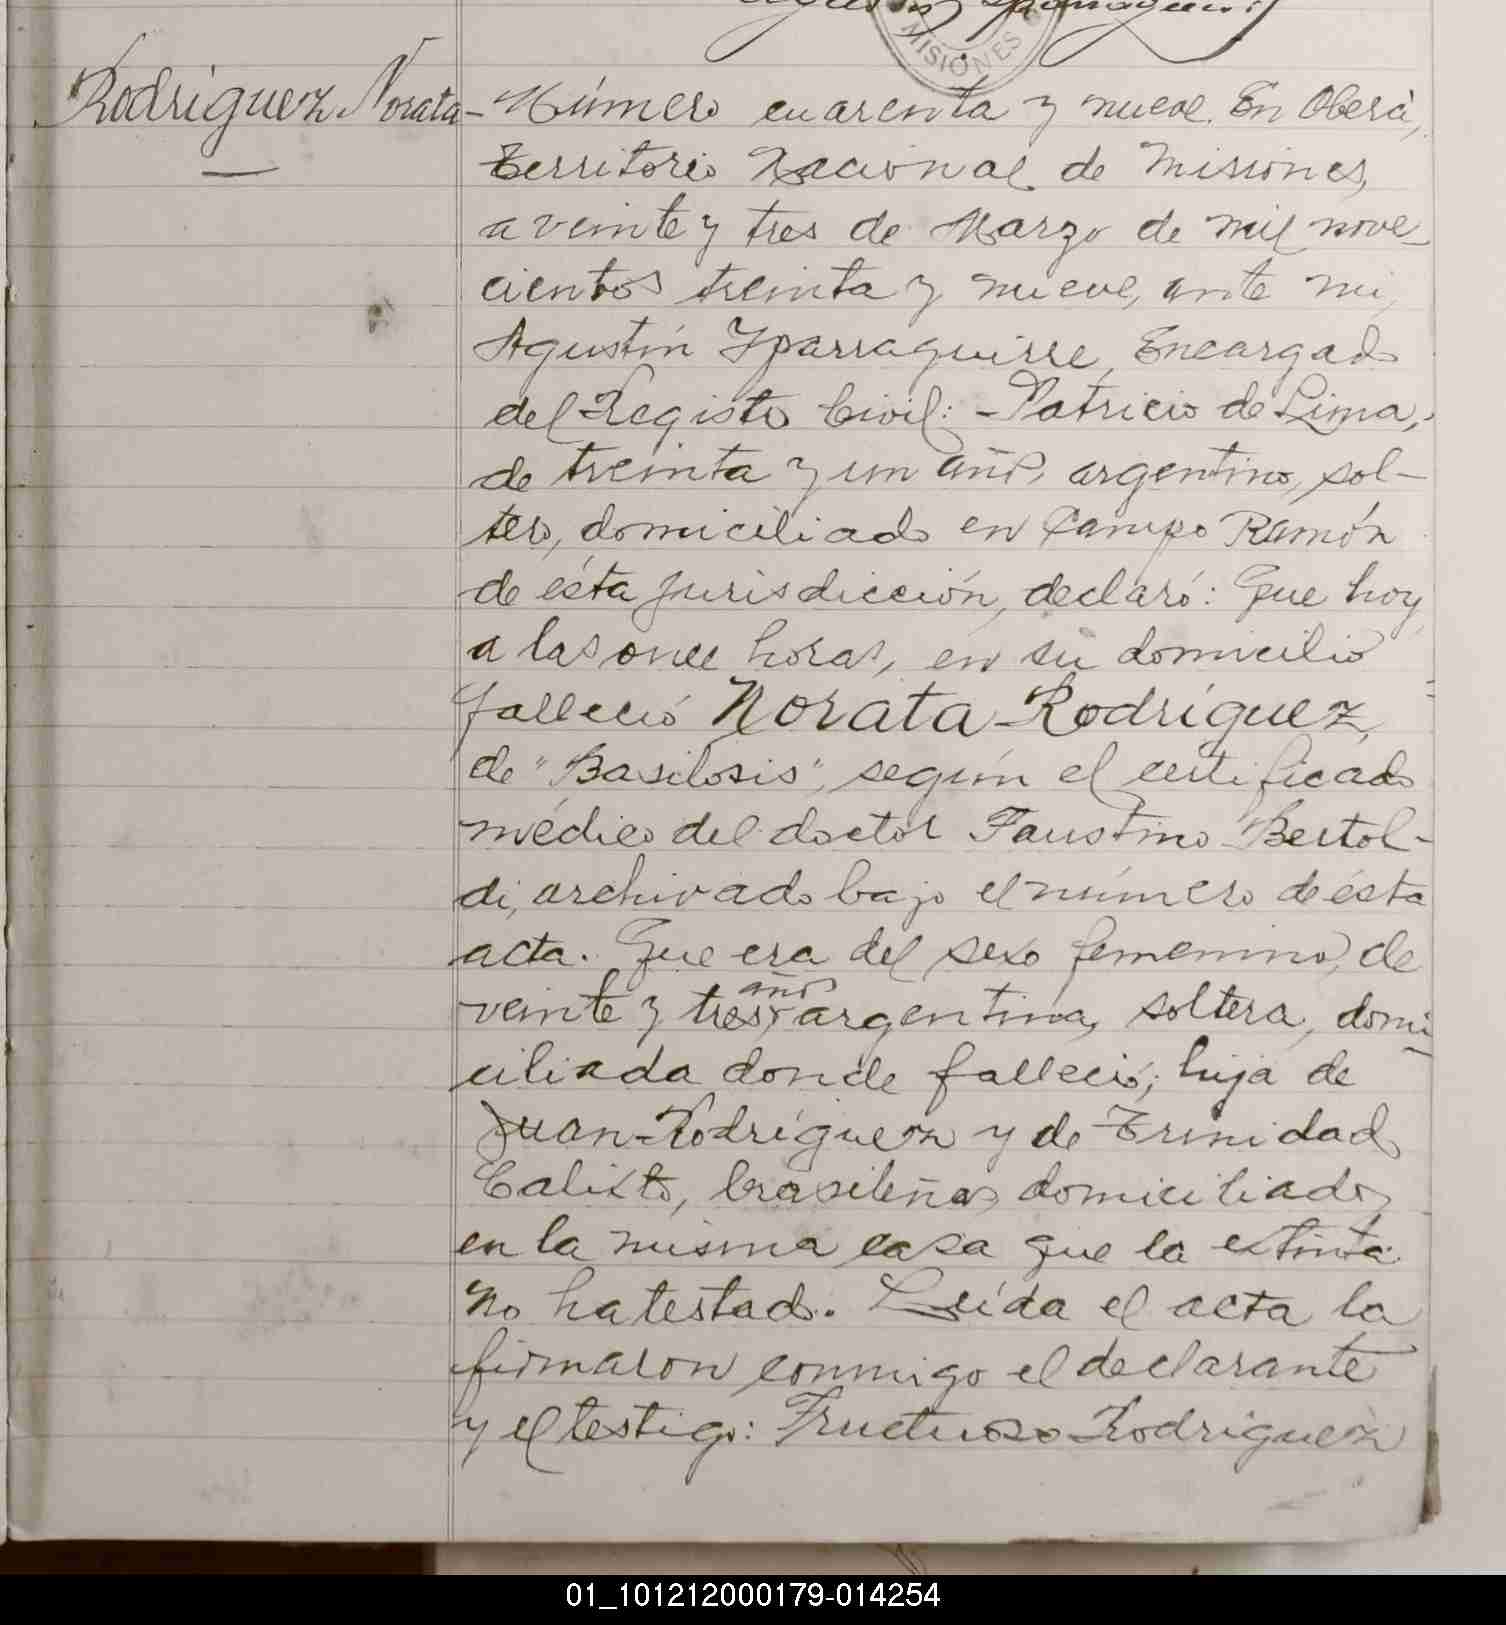 MISIONES
Rodríguez Norata - Número cuarenta y nueve. En Oberá,
Territorio Nacional de Misiones,
a veinte y tres de Marzo de mil nove-
cientos treinta y nueve, ante mi,
Agustín Yparraguirre, Encargado
del Registo Civil: - Patricio de Lima,
de treinta y un años, argentino, sol-
tero, domiciliado en Campo Ramón
de ésta jurisdicción, declaró: Que hoy
a las once horas, en su domicilio
falleció Norata Rodríguez,
de "Basilosis", según el certificado
médico del doctor Faustino Bertol-
di, archivado bajo el número de ésta
acta. Que era del sexo femenino, de
años
veinte y tres, argentina, soltera, domi-
ciliada donde falleció; hija de
Juan Rodríguez y de Trinidad
Calixto, brasileños domiciliados
en la misma casa que la extinta.
No ha testado. Leída el acta la
firmaron conmigo el declarante
y el testigo: Fructuoso Rodríguez
01_101212000179-014254